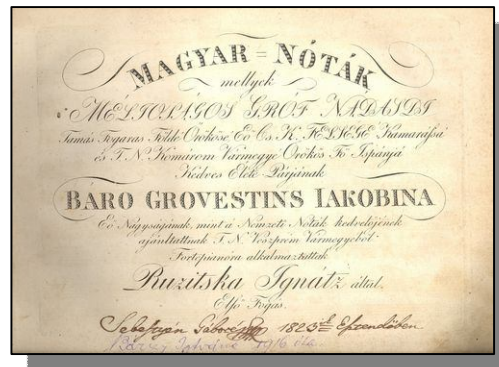 MAGYAR = NÓTÁK
mellyek
MÉLTOSÁGOS GRÓF NÁDASDI
Tamás Fogaras Földe Örököse Eö Cs. K. FELSEGE Kamarássa
és T. N. Komárom Vármegye Örökös Fő Ispánja
Kedves Élete Párjának
BÁRO GROVESTINS IAKOBINA
Eő Nagyságának, mint a Nemzeti Nóták kedvelőjének
ajánltattnak T. N. Veszprém Vármegyéből
Fortépianóra alkalmaztattak
Ruzitska Ignátz által.
Elsö Fogás.
Sebestyén Gábor 1823ik Esztendőben
1916